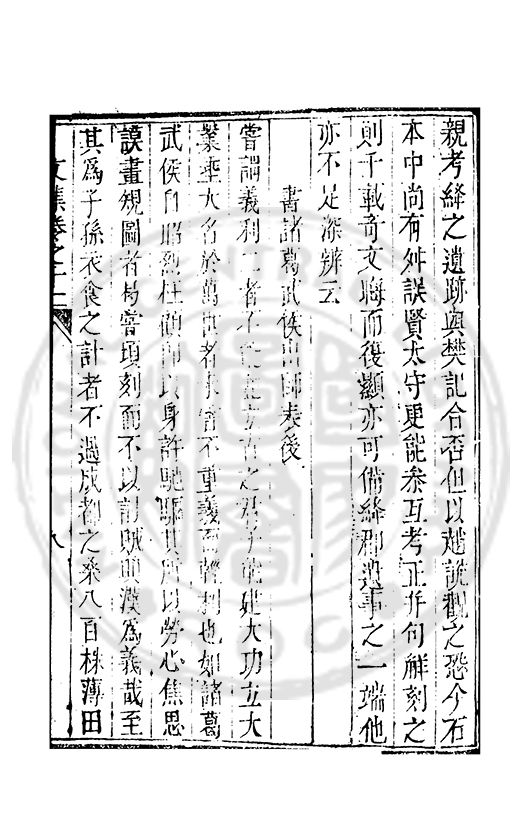 親考絳之遺跡與樊記合否但以趙說觀之恐今石
本中尚有舛誤賢太守更能叅互考正并句解刻之
則千載奇文晦而復顯亦可備絳郡遺事之一端他
亦不足深辨云
書諸葛武侯出師表後
嘗謂義利二者不能並立古之君子能建大功立大
業垂大名於萬世者未嘗不重義而輕利也如諸葛
武侯自昭烈枉顧即以身許馳驅其所以勞心焦思
謨畫規圖者曷嘗頃刻而不以討賊興漢爲義哉至
其爲子孫衣食之計者不過成都之桑八百株薄田
文集卷之十二
八